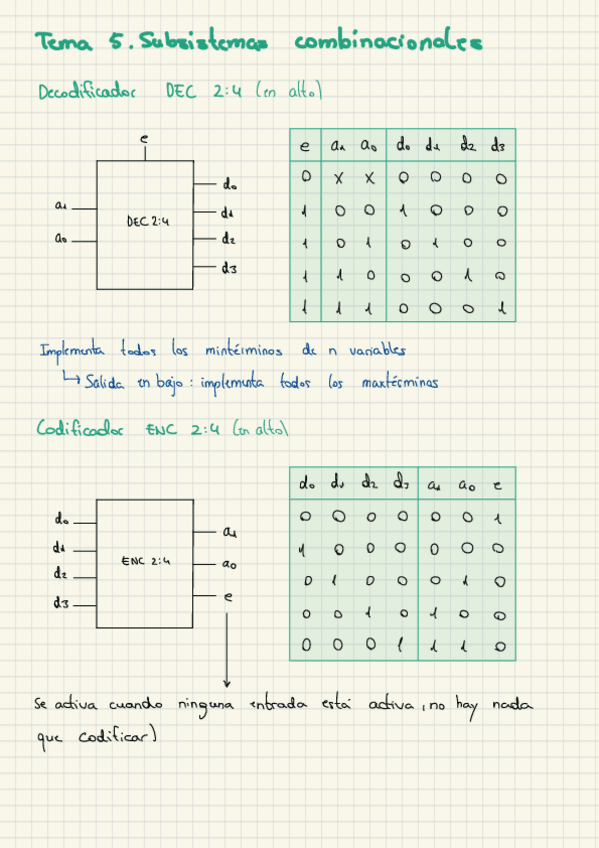 Tema 5. Subsistemas combinacionales
Decodificador DEC 2:4 (en alto)
e
a1
a0
DEC 2:4
d0
d1
d2
d3
e a1 a0 d0 d1 d2 d3
0 x x 0 0 0 0
1 0 0 1 0 0 0
1 0 1 0 1 0 0
1 1 0 0 0 1 0
1 1 1 0 0 0 1
Implementa todos los mintérminos de n variables
↳ Salida en bajo: implementa todos los maxtérminos
Codificador ENC 2:4 (en alto)
d0
d1
d2
d3
ENC 2:4
a1
a0
e
d0 d1 d2 d3 a1 a0 e
0 0 0 0 0 0 1
1 0 0 0 0 0 0
0 1 0 0 0 1 0
0 0 1 0 1 0 0
0 0 0 1 1 1 0
Se activa cuando ninguna entrada está activa (no hay nada
que codificar)